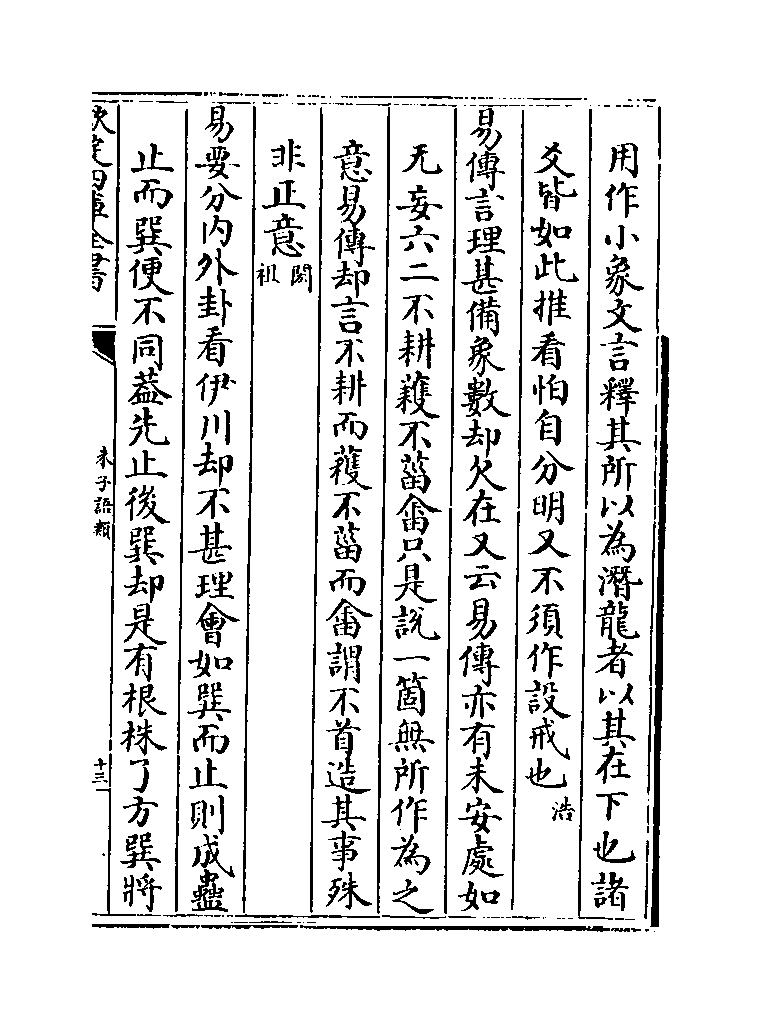 用作小象文言釋其所以為潛龍者以其在下也諸
爻皆如此推看怕自分明又不須作設戒也浩
易傳言理甚備象數却欠在又云易傳亦有未安處如
无妄六二不耕穫不菑畬只是說一箇無所作為之
意易傳却言不耕而穫不菑而畬謂不首造其事殊
非正意閎祖
易要分内外卦看伊川却不甚理會如巽而止則成蠱
止而巽便不同葢先止後巽却是有根株了方巽將
欽定四庫全書
朱子語類
十三